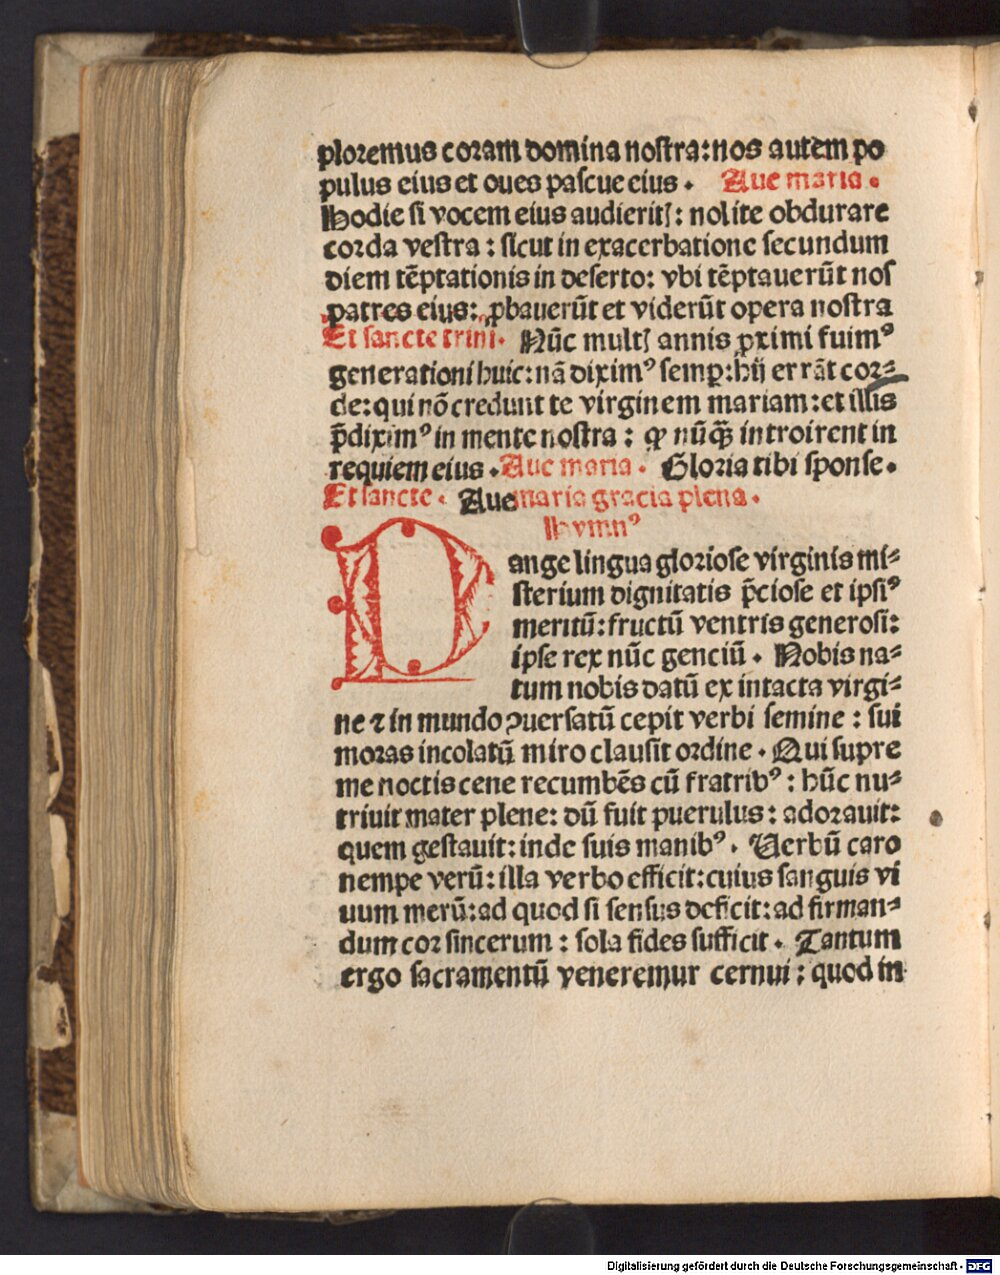 ploremus coram domina nostra: nos autem po
pulus eius et oues pascue eius . Aue maria .
Hodie si vocem eius audieritꝭ: nolite obdurare
corda vestra : sicut in exacerbatione secundum
diem tēptationis in deserto: vbi tēptauerūt nos
patres eius: ꝓbauerūt et viderūt opera nostra
Et sancte trini. Nūc multꝭ annis ꝓximi fuimꝰ
generationi huic: nā diximꝰ semꝑ: hij errāt cor⸗
de: qui nō credunt te virginem mariam: et illis
p̄diximꝰ in mente nostra : ꝙ nūq̄ȝ introirent in
requiem eius . Aue maria . Gloria tibi sponse .
Et sancte . Aue maria gracia plena .
Hymnꝰ
Pange lingua gloriose virginis mi⸗
sterium dignitatis p̄ciose et ipsiꝰ
meritū: fructū ventris generosi:
ipse rex nūc genciū . Nobis na⸗
tum nobis datū ex intacta virgi⸗
ne ⁊ in mundo ꝯuersatū cepit verbi semine : sui
moras incolatū miro clausit ordine . Qui supre
me noctis cene recumbēs cū fratribꝰ : hūc nu⸗
triuit mater plene: dū fuit puerulus : adorauit:
quem gestauit: inde suis manibꝰ . Verbū caro
nempe verū: illa verbo efficit: cuius sanguis vi
uum merū: ad quod si sensus deficit: ad firman⸗
dum cor sincerum : sola fides sufficit . Tantum
ergo sacramentū veneremur cernui : quod in
Digitalisierung gefördert durch die Deutsche Forschungsgemeinschaft - DFG